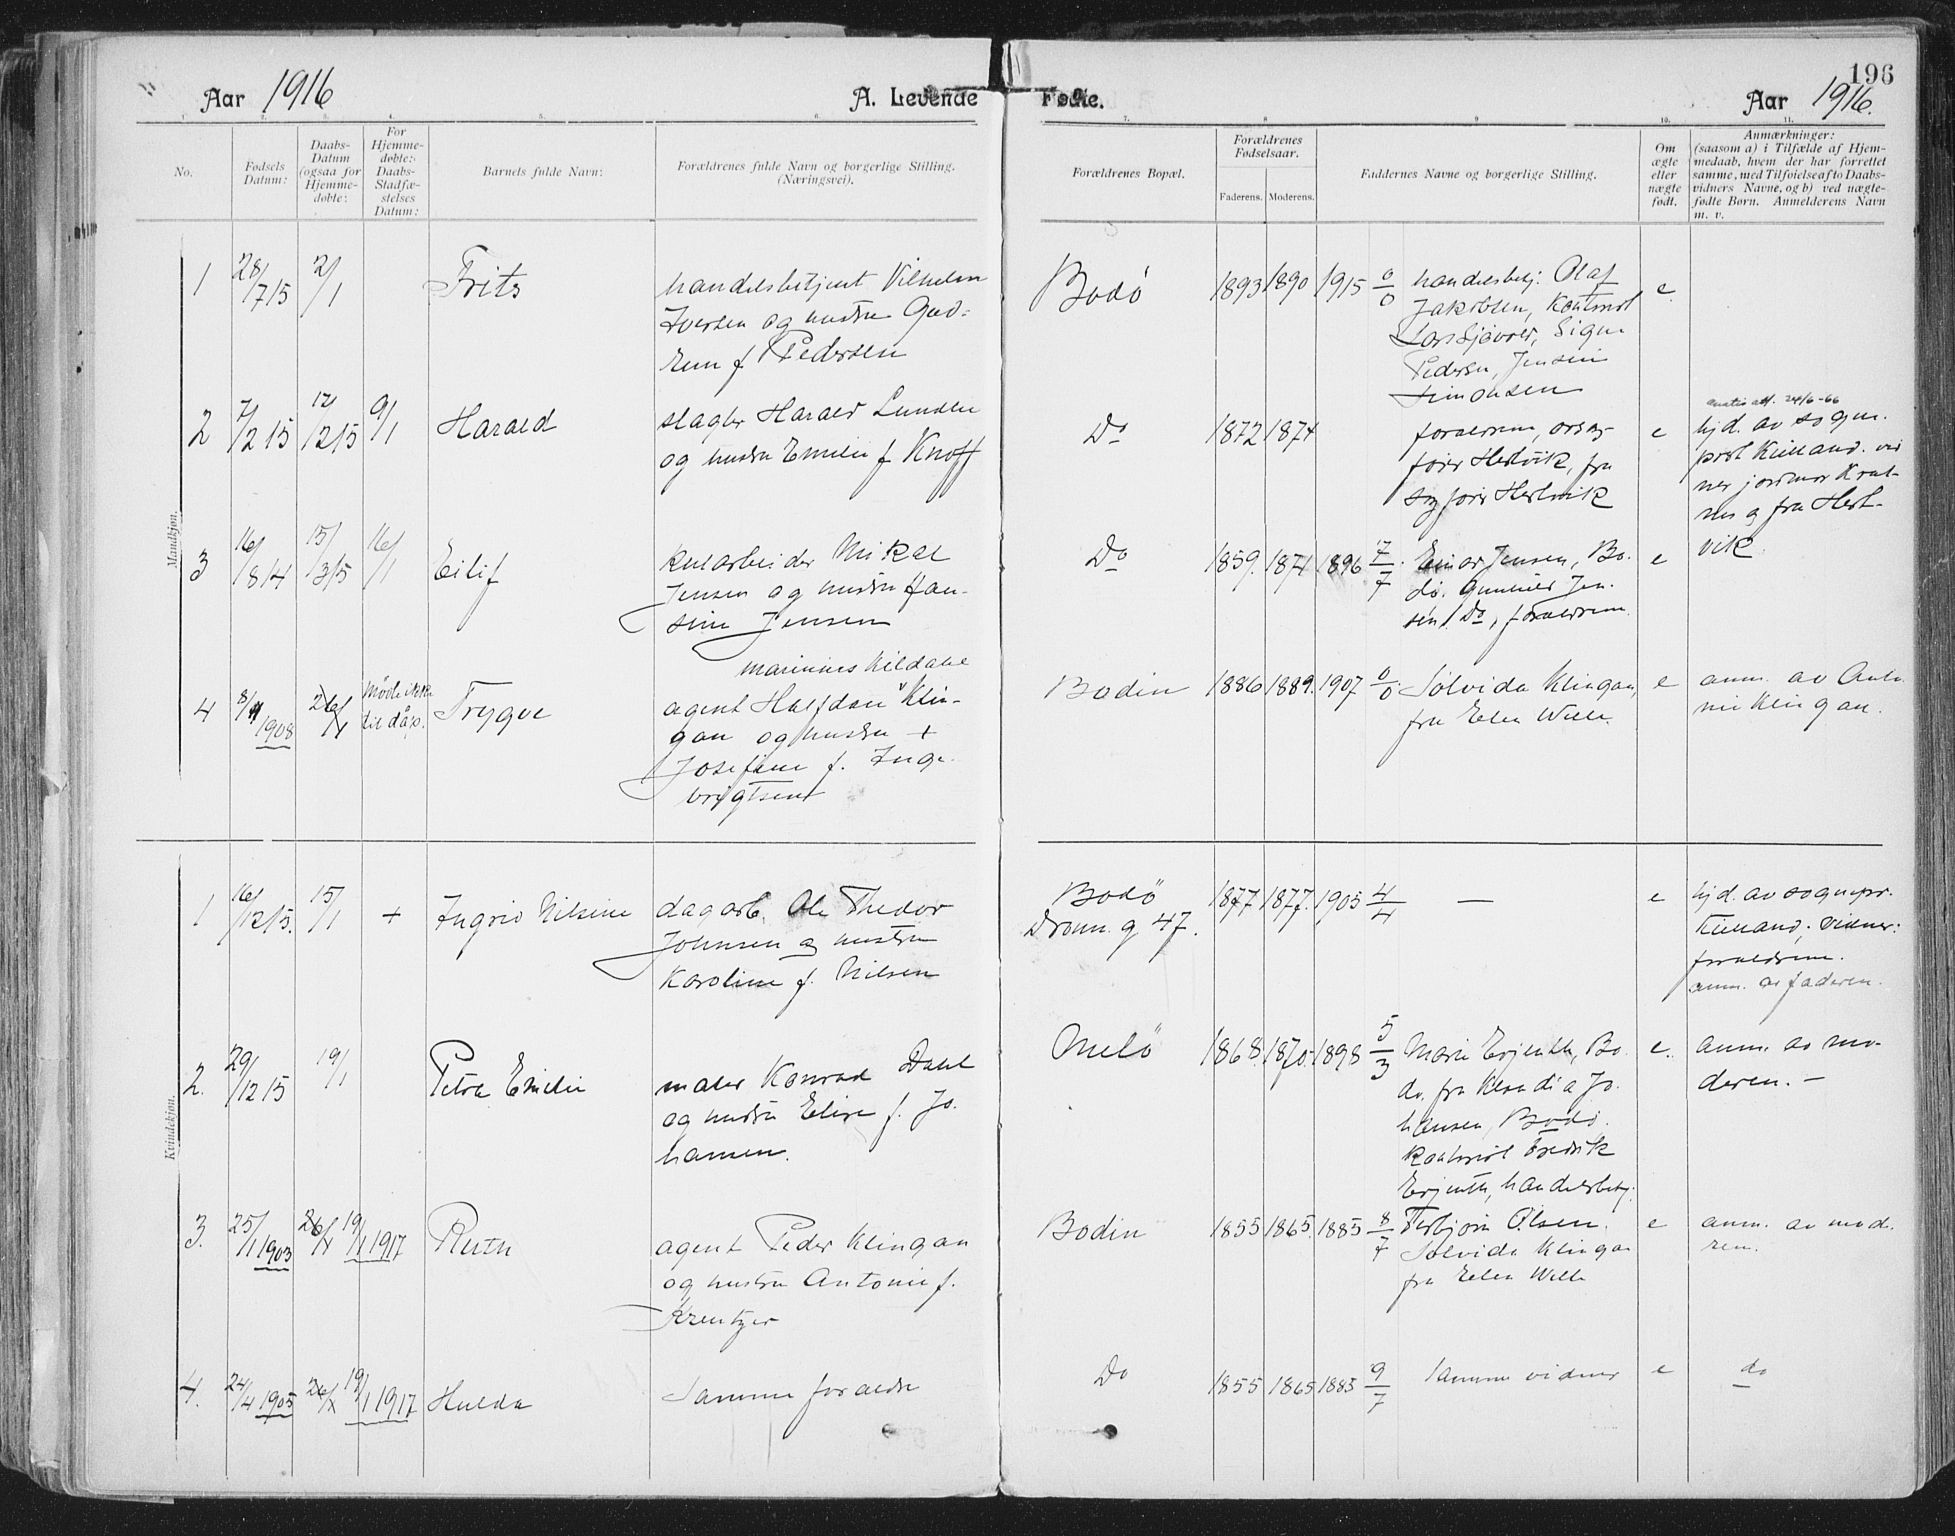 196
Aar 1916
A. Levende
Fødte.
Aar 1916.
1. 2. 3. 4. 5. 6. 7. 8. 9. 10. 11.
No.
Fødsels
Datum:
Daabs-
Datum
(ogsaa for
Hjemme-
døbte:
For
Hjemme-
døbte:
Daabs-
Stadfæ-
stelses
Datum:
Barnets fulde Navn:
Forældrenes fulde Navn og borgerlige Stilling.
(Næringsvei).
Forældrenes Bopæl.
Forældrenes
Fødselsaar.
Faderens. Moderens.
Faddernes Navne og borgerlige Stilling.
Om
ægte
eller
nægte
født.
Anmærkninger:
(saasom a) i Tilfælde af Hjem-
medaab, hvem der har forrettet
samme, med Tilføielse af to Daabs-
vidners Navne, og b) ved nægte-
fødte Børn. Anmelderens Navn
m. v.
Mandkjøn.
1 28/7 15 2/1 Frits
handelsbetjent Vilhelm
Iversen og hustru Gud-
run f. Pedersen
Bodö 1893 1890 1915 0/0
handelsbetj. Olaf
Jakobsen, Kontorist
Lars Sjåvær, Signe
Pedersen, Jensine
Simonsen
e
2 7/2 15 12/2 15 9/1 Harald
slagter Harald Lunden
og hustru Emilie f. Knoff
Do 1872 1874
foreldrene, orsag-
förer Hertvik, fru
sagförer Hertvik
e
attest utst. 24/6-66
hjd. av sogne-
prst Kielland. vid
ner jordmor Krat-
nes og fru Hert-
vik
3 16/8 14 15/3 15 16/1 Eilif
kularbeider Mikal
Jensen og hustru Han-
sine Jensen
Do 1859. 1871 1896 7/7
Einar Jensen, Bo-
dö. Gunhild Jen-
sen, Do, foreldrene.
e
4 8/4 1908 26/1 Mødte ikke
til dåp. Trygve
marinius hildahl
agent Halfdan Klin-
gan og hustru +
Josefine f. Inge-
brigtsen
Bodin 1886 1889. 1907 0/0
Solvida Klingan,
fru Elen Wille
e
anm. av Anto-
nie Klingan.
Kvindekjøn.
1 16/12 15. 15/1 + Ingrid Nilsine
dagarb. Ole Thedor
Johnsen og hustru
Karoline f. Nilsen
Bodö
Dronn. g 47. 1877 1877. 1905 4/4 — e
hjd. av sognepr.
Kielland; vidner:
foreldrene.
anm. av faderen.
2. 29/12 15 19/1 Petra Emilie
maler Konrad Dahl
og hustru Elise f. Jo-
hansen.
Melö 1868. 1870. 1898 5/3
Marie Erjenth, Bo-
dö. fru Klaudia Jo-
hansen, Bodö.
kontorist Fredrik
Erjenth, handelsbetj.
e.
anm. av mo-
deren. —
3. 25/1 1903 26/1 19/1 1917 Ruth
agent Peder Klingan
og hustru Antonie f.
Kreutzer
Bodin 1855 1865. 1885 8/7
Torbjörn Olsen.
Solvida Klingan
fru Elen Wille
e
anm. av mode-
ren.
4. 24/4 1905 26/1 19/1 1917 Hulda
Samme foreldre
Do 1855 1865 1885 9/7
Samme vidner
e do